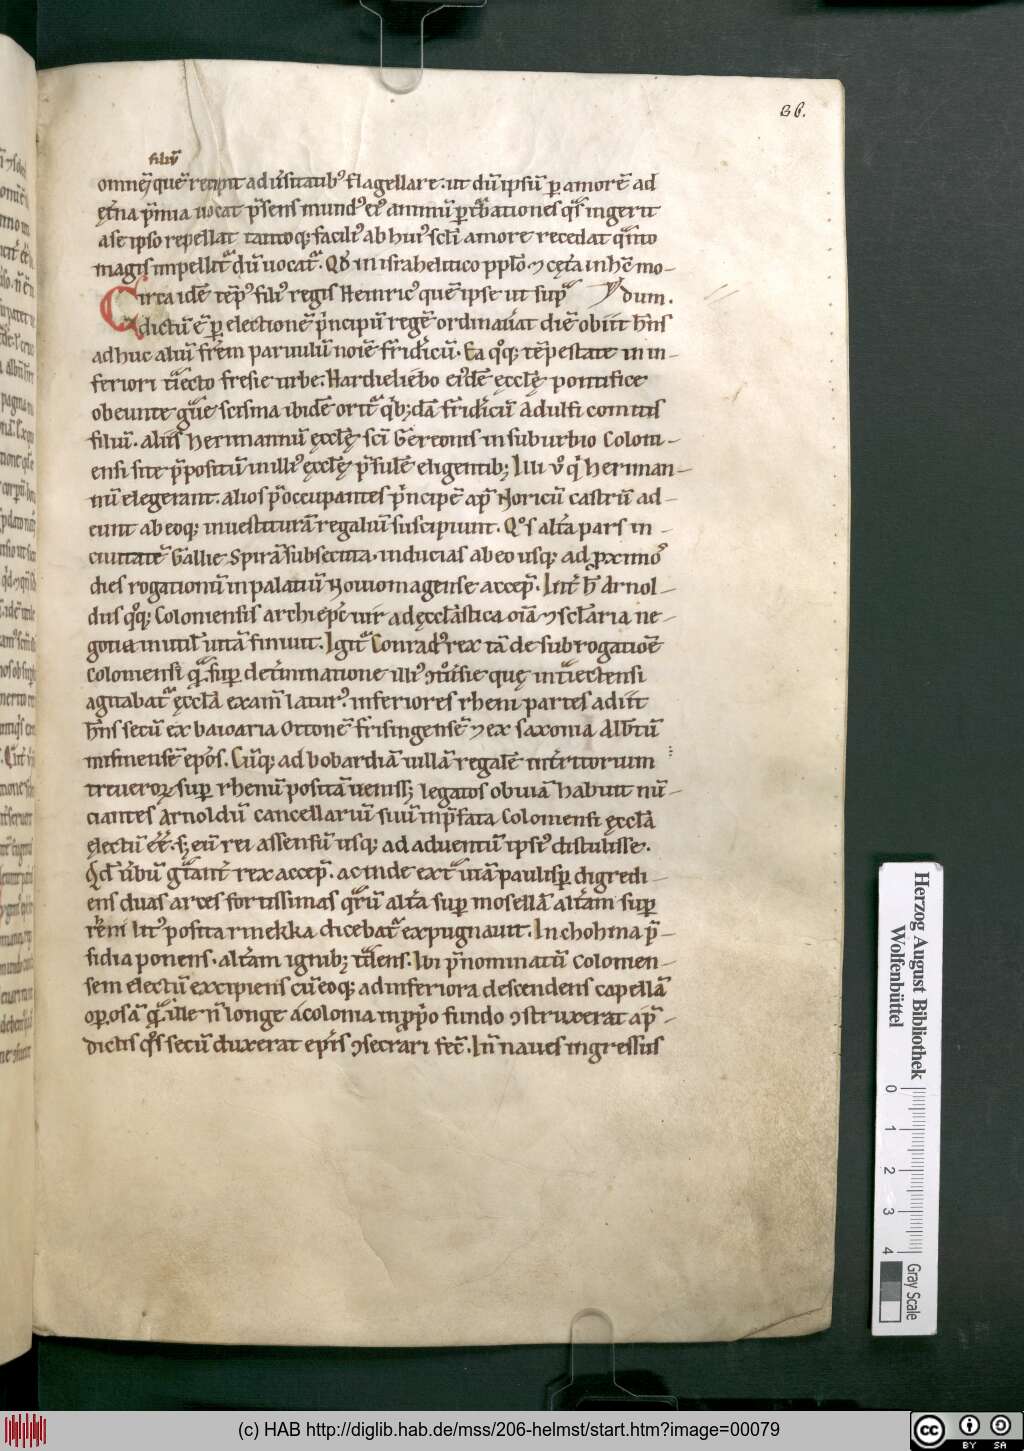 36.
filiū
omnē quē recipit adūsitatibꝰ flagellare. ut dū ipsū ꝑ amorē ad
ęt̄na p̄mia uocat p̄sens mundꝰ eiꝰ animū ꝑ turbationes qͣs ingerit
a se ipso repellat tantoqꝫ faciliꝰ ab huiꝰ sc̄li amore recedat qͣnto
magis impellitᷓ dū uocatᷓ. Qd̓ in israhelitico pplō ⁊ cęt̓a in hē mo-
Circa idē tēpꝰ filiꝰ regis Heinricꝰ quē ipse ut sup͛ dum.
dictū ē ꝑ electionē p͛ncipū regē ordinau͛at diē obiit hn̄s
adhuc aliū fr̄em paruulū noīe frid͛icū. Ea qͦqꝫ tēpestate in in-
feriori t͛iecto fresie urbe. Hardieliebo eiꝰdē ęcclę̄ pontifice
obeunte gͣue scisma ibidē oritᷓ qͥbꝫdā frid͛icū Adulfi comitis
filiū. aliis herimannū ęcclę̄ sc̄i Gereonis in suburbio Coloni-
ensi site p̄positū in illiꝰ ęcclę̄ p̄sulē eligentibꝫ. Illi u̓o qͥ heriman-
nū elegerant. alios p̄occupantes p͛ncipē ap̄ Noricū castrū ad-
eunt ab eoqꝫ inuestiturā regaliū suscipiunt. Qͦs alt͛a pars in
ciuitatē Gallie Spirā subsecuta. inducias ab eo usqꝫ ad ꝓximos
dies rogationū in palatiū Nouiomagense accep̄. Int͛ h̄ Arnol-
dus qͦqꝫ Coloniensis archiep̄c uir ad ęccl̄astica oīa ⁊ sc̄laria ne-
gotia inutil̓ uitā finiuit. Igitᷓ Conradꝰ rex tā de subrogatiōe
coloniensi qͣ sup̄ det͛minatione illiꝰ ꝯtͦu͛sie quę int͛iectensi
agitabatᷓ ęccl̄a exam̄laturꝰ. inferiores rheni partes adiit
hn̄s secū ex baioaria Ottonē frisingensē ⁊ ex saxonia Alb͛tū
misinensē ep̄os. Cūqꝫ ad bobardiā uillā regalē in t͛ritorium
treueroꝝ sup̄ rhenū positā uenissꝫ legatos obuiā habuit nū-
ciantes Arnoldū cancellariū suū in p̄fata Coloniensi ęccl̄a
ęlectū ēē. sꝫ eū rei assensū usqꝫ ad aduentū ipsiꝰ distulisse.
Qd̄ u͛bū gͣtant͛ rex accep̄. ac inde exitᷓ uiā paulisp̄ digredi-
ens duas arces fortissimas qͣrū alt͛a sup̄ mosellā alt͛am sup̄
reni litꝰ posita rinekka dicebatᷓ expugnauit. In chohma p̄-
sidia ponens. alt͛am ignibꝫ t͛dens. Ibi p̄nominatū colonien-
sem electū excipiens cū eoqꝫ ad inferiora descendens capellā
oꝑosā qͣ ille n̄ longe a colonia in ꝓp̄o fundo ꝯstruxerat ap̄-
dictis qͦs secū duxerat epīs ꝯsecrari fec̄. In̄ naues ingressus
Herzog August Bibliothek
Wolfenbüttel
0 1 2 3 4
Gray Scale
(c) HAB http://diglib.hab.de/mss/206-helmst/start.htm?image=00079
cc BY SA